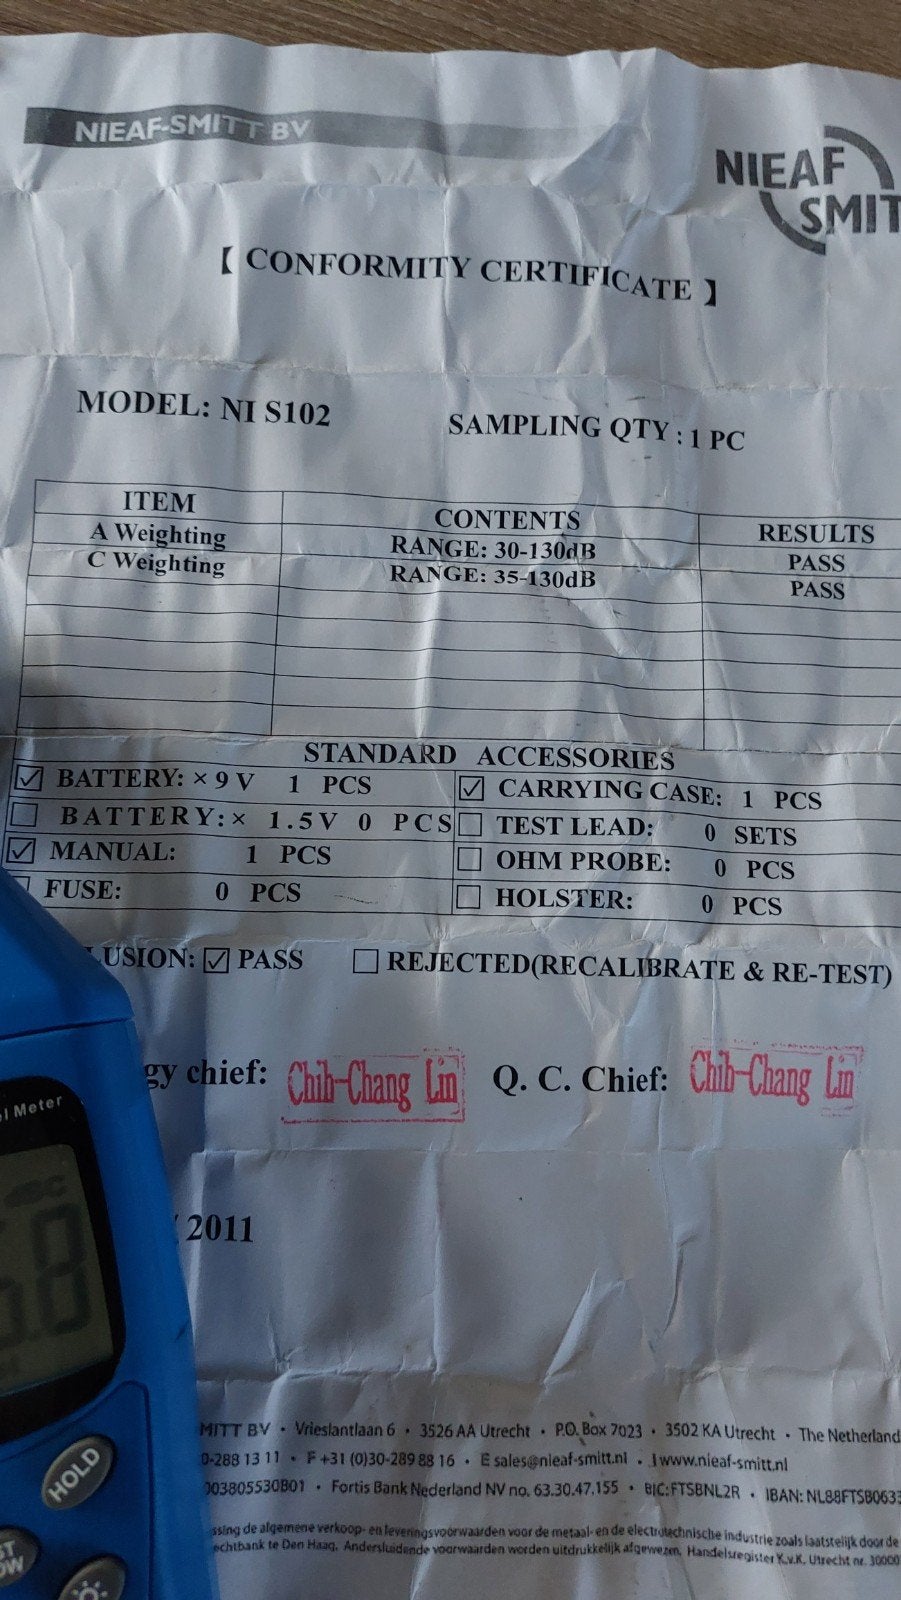 NIEAF-SMITT BV
NIEAF
SMIT
【 CONFORMITY CERTIFICATE 】
MODEL: NI S102
SAMPLING QTY : 1 PC
ITEM CONTENTS RESULTS
A Weighting RANGE: 30-130dB PASS
C Weighting RANGE: 35-130dB PASS
STANDARD ACCESSORIES
☑ BATTERY: × 9 V 1 PCS ☑ CARRYING CASE: 1 PCS
☐ BATTERY: × 1.5V 0 PCS ☐ TEST LEAD: 0 SETS
☑ MANUAL: 1 PCS ☐ OHM PROBE: 0 PCS
☐ FUSE: 0 PCS ☐ HOLSTER: 0 PCS
LUSION: ☑ PASS ☐ REJECTED(RECALIBRATE & RE-TEST)
gy chief: Chih-Chang Lin Q. C. Chief: Chih-Chang Lin
/ 2011
MITT BV • Vrieslantlaan 6 • 3526 AA Utrecht • P.O. Box 7023 • 3502 KA Utrecht • The Netherland
0-288 13 11 • F +31 (0)30-289 88 16 • E sales@nieaf-smitt.nl • I www.nieaf-smitt.nl
003805530B01 • Fortis Bank Nederland NV no. 63.30.47.155 • BIC: FTSBNL2R • IBAN: NL88FTSB0633
ssing de algemene verkoop- en leveringsvoorwaarden voor de metaal- en de electrotechnische industrie zoals laatstelijk door de
echtbank te Den Haag. Andersluidende voorwaarden worden uitdrukkelijk afgewezen. Handelsregister K.v.K. Utrecht nr. 30000
el Meter
dBC
HOLD